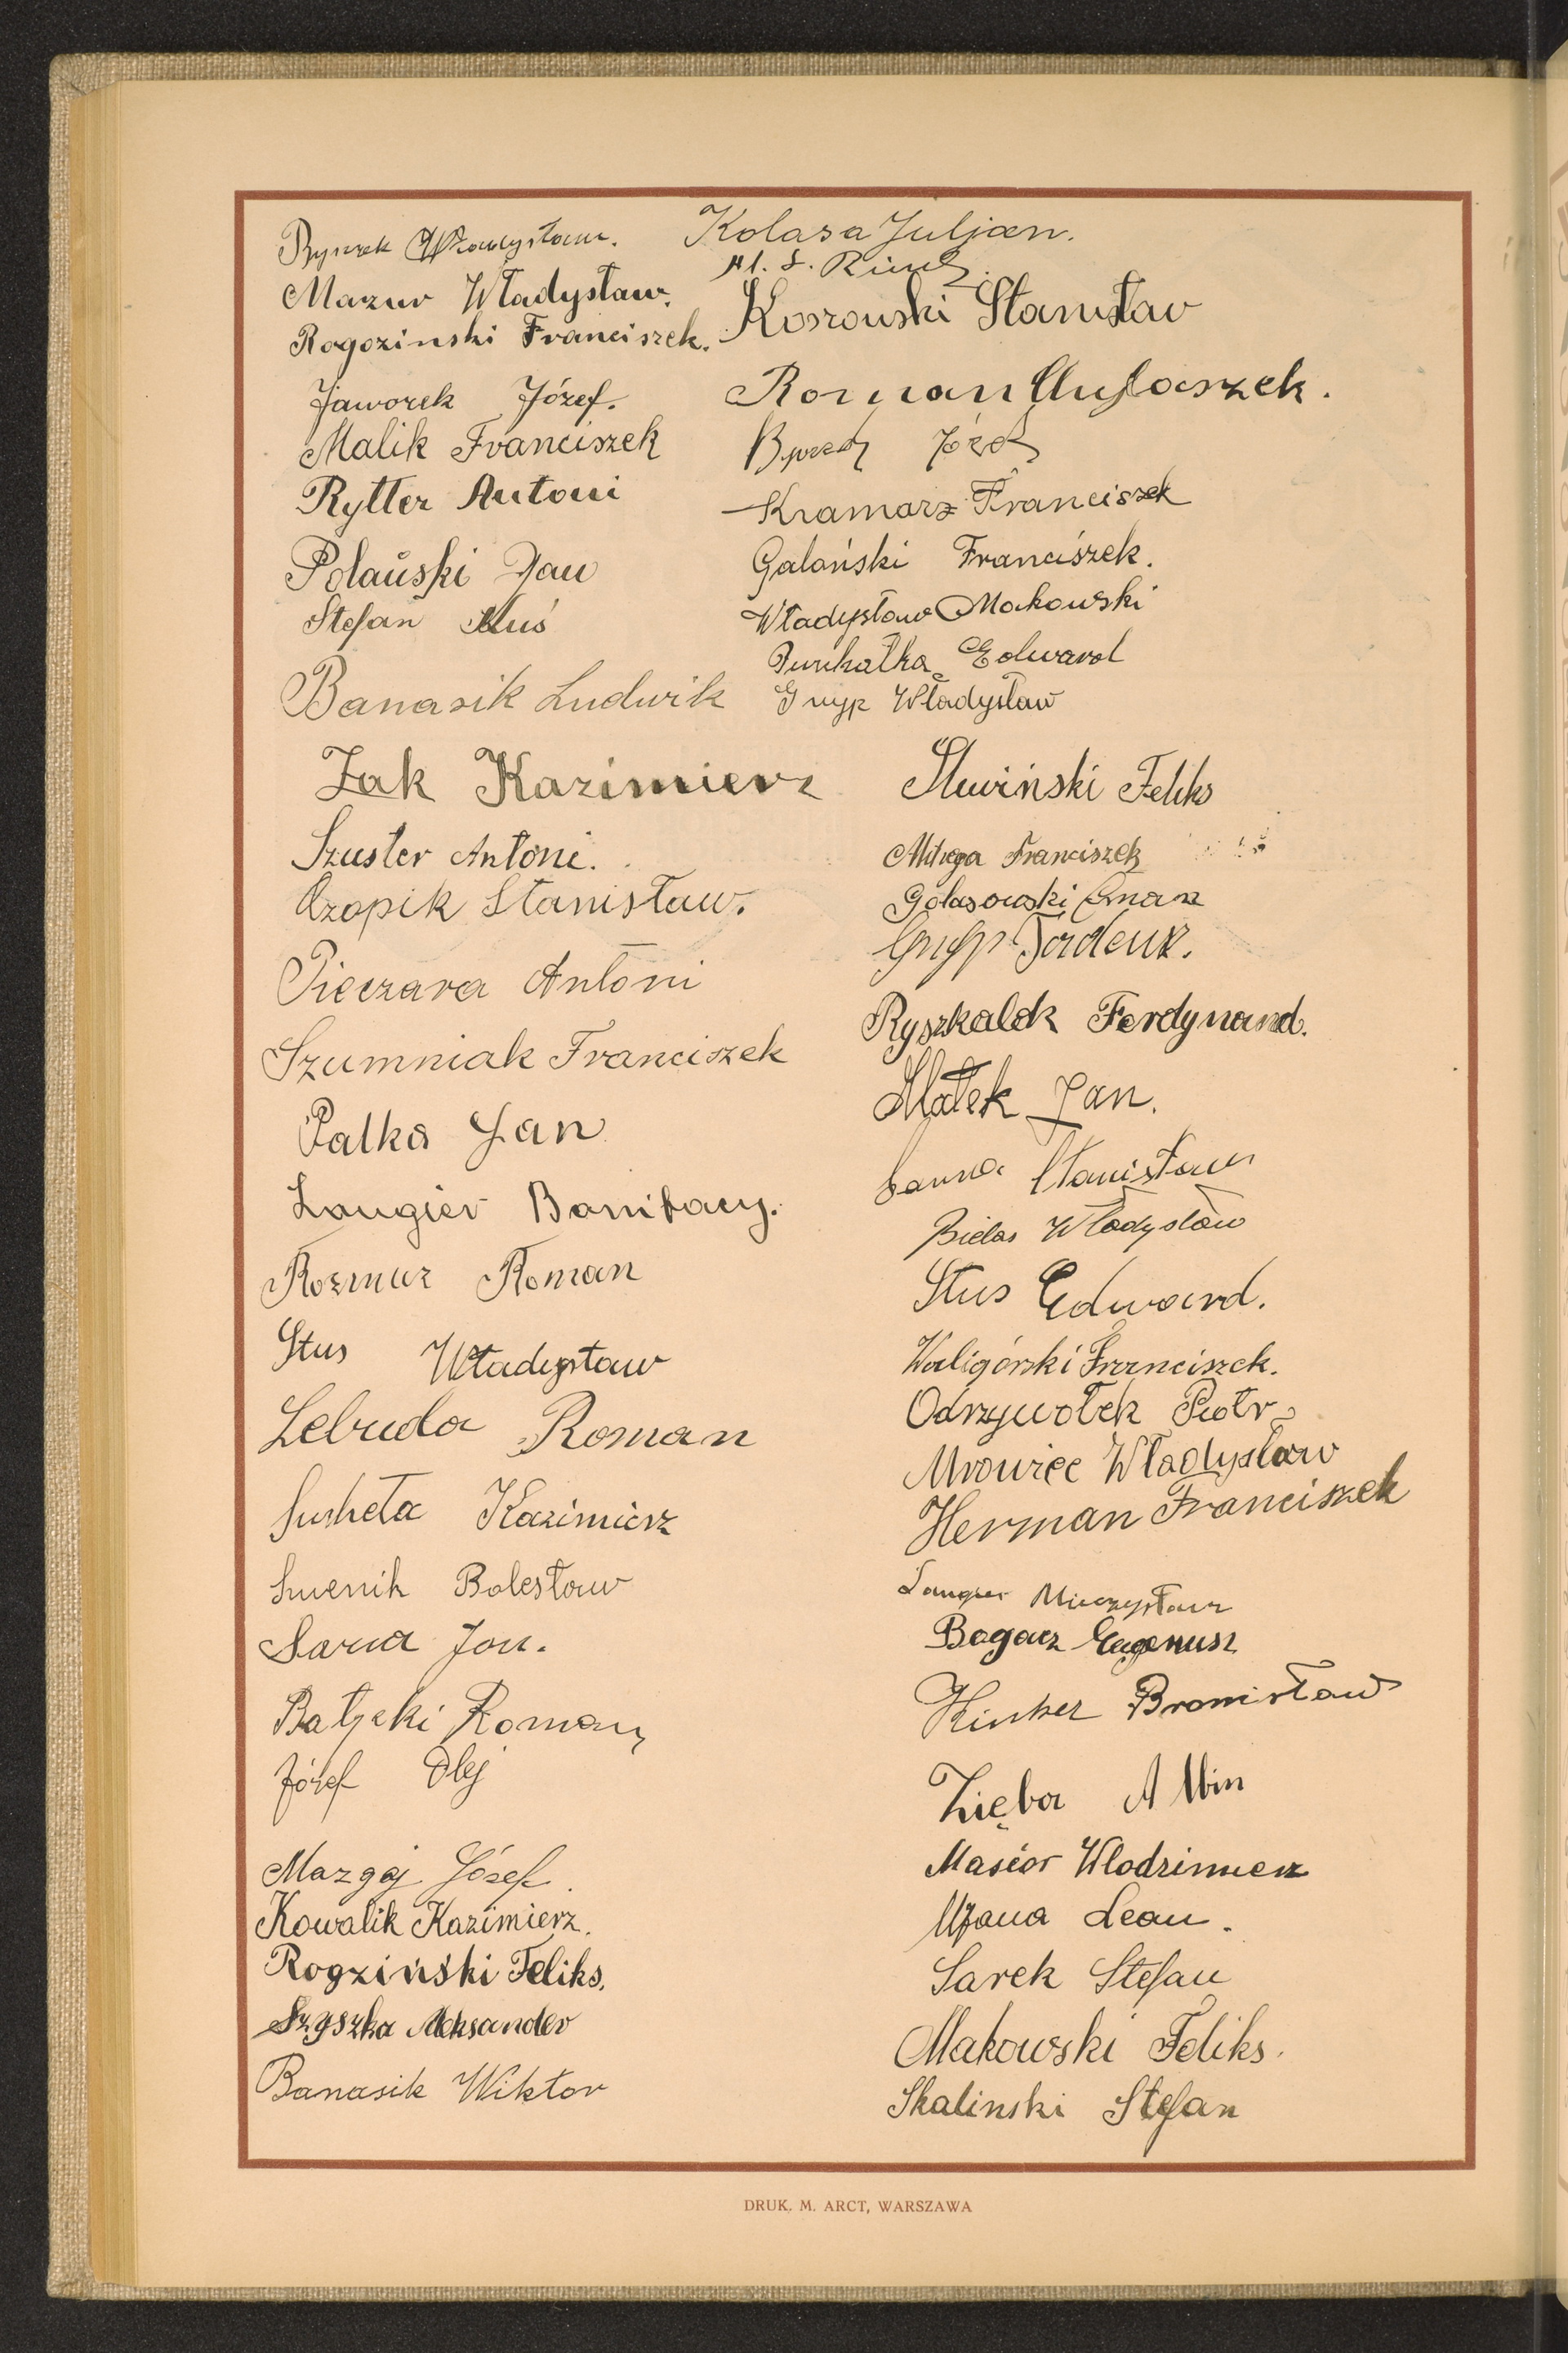 Bysiek Władysław.
Mazur Władysław.
Rogozinski Franciszek.
Jaworek Józef.
Malik Franciszek
Rytter Antoni
Polański Jan
Stefan Kuś
Banasik Ludwik
Żak Kazimierz
Szuster Antoni.
Czopik Stanisław.
Pieczara Antoni
Szumniak Franciszek
Palka Jan
Laugier Bonifacy.
Rozmus Roman
Stus Władysław
Lebuda Roman
Susketa Kazimierz
Bolesław
Sarna Jan.
Bałycki Roman
Józef Olej
Mazgaj Józef.
Kowalik Kazimierz.
Rogziński Feliks.
Szyszka Aleksander
Banasik Wiktor
Kolasa Juljan.
Kosrowski Stanisław
Roman
Józef
Kramarz Franciszek
Galański Franciśzek.
Władysław Makowski
Edward
Gnyp Władysław
Śliwiński Feliks
Mitręga Franciszek
Golasowski
Gnyp Tadeusz.
Ryszkalok Ferdynand.
Małek Jan.
Sarna Stanisław
Bielas Władysław
Stus Edward.
Waligórski Franciszek.
Odrzywołek Piotr
Mrowiec Władysław
Herman Franciszek
Laugier Mieczysław
Bogacz Eugenusz
Bronisław
Zięba Albin
Masior Wlodzimierz
Leon.
Sarek Stefan
Makowski Feliks.
Skalinski Stefan
DRUK. M. ARCT, WARSZAWA